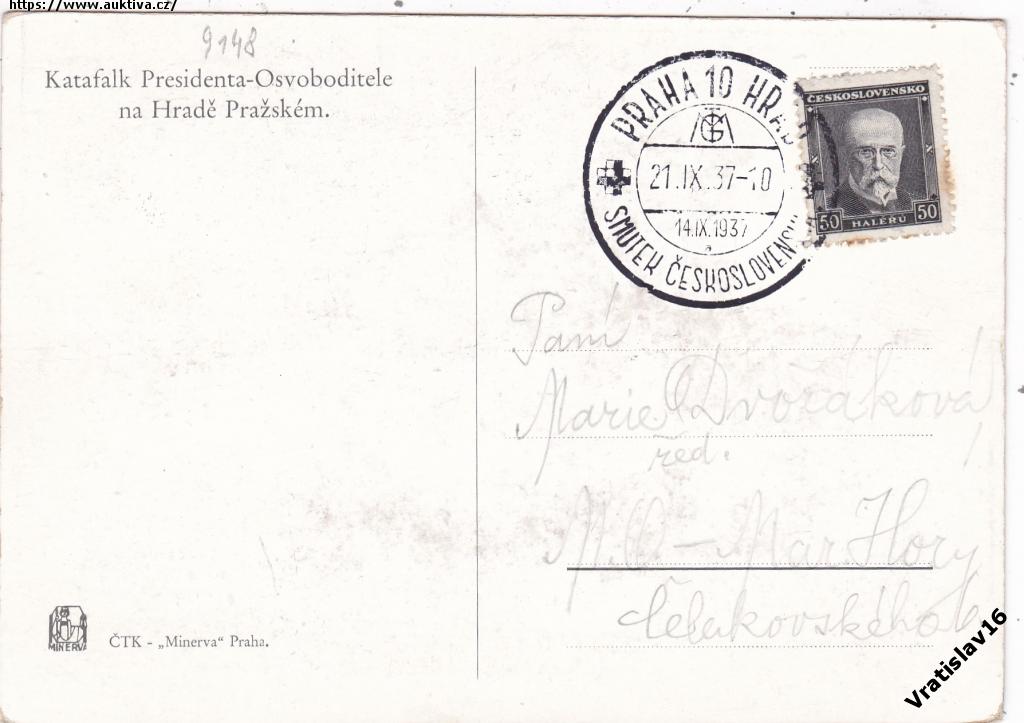 https://www.auktiva.cz/
9148
Katafalk Presidenta-Osvoboditele
na Hradě Pražském.
PRAHA 10 HRAD
21.IX.37-10
14.IX.1937
a
SMUTEK ČESKOSLOVENSKA
ČESKOSLOVENSKO
50 HALÉŘŮ 50
Paní
Marie Dvořáková
řed.
M.O. – Mar. Hory
Čelakovského 6
MINERVA
ČTK - „Minerva" Praha.
Vratislav16